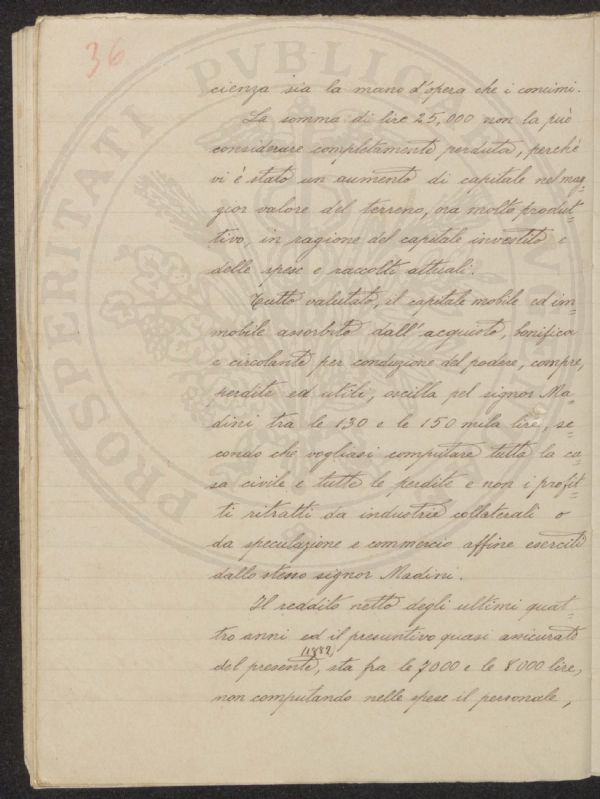 36
cienza sia la mano d'opera che i concimi.
La somma di lire 25,000 non la può
considerare completamente perduta, perché
vi è stato un aumento di capitale nel mag-
gior valore del terreno, ora molto produt-
tivo, in ragione del capitale investito e
delle spese e raccolti attuali.
Tutto valutato, il capitale mobile ed im-
mobile assorbito dall'acquisto, bonifica
e circolante per conduzione del podere, compre,
perdite ed utili, oscilla pel signor Ma-
dini tra le 130 e le 150 mila lire, se-
condo che vogliasi computare tutta la ca-
sa civile e tutte le perdite e non i profit-
ti ritratti da industrie collaterali o
da speculazione e commercio affine eserciti
dallo stesso signor Madini.
Il reddito netto degli ultimi quat-
tro anni ed il presuntivo quasi assicurato
del presente, (1882) sta fra le 7000 e le 8000 lire,
non computando nelle spese il personale,
PROSPERITATI PVBLICAE